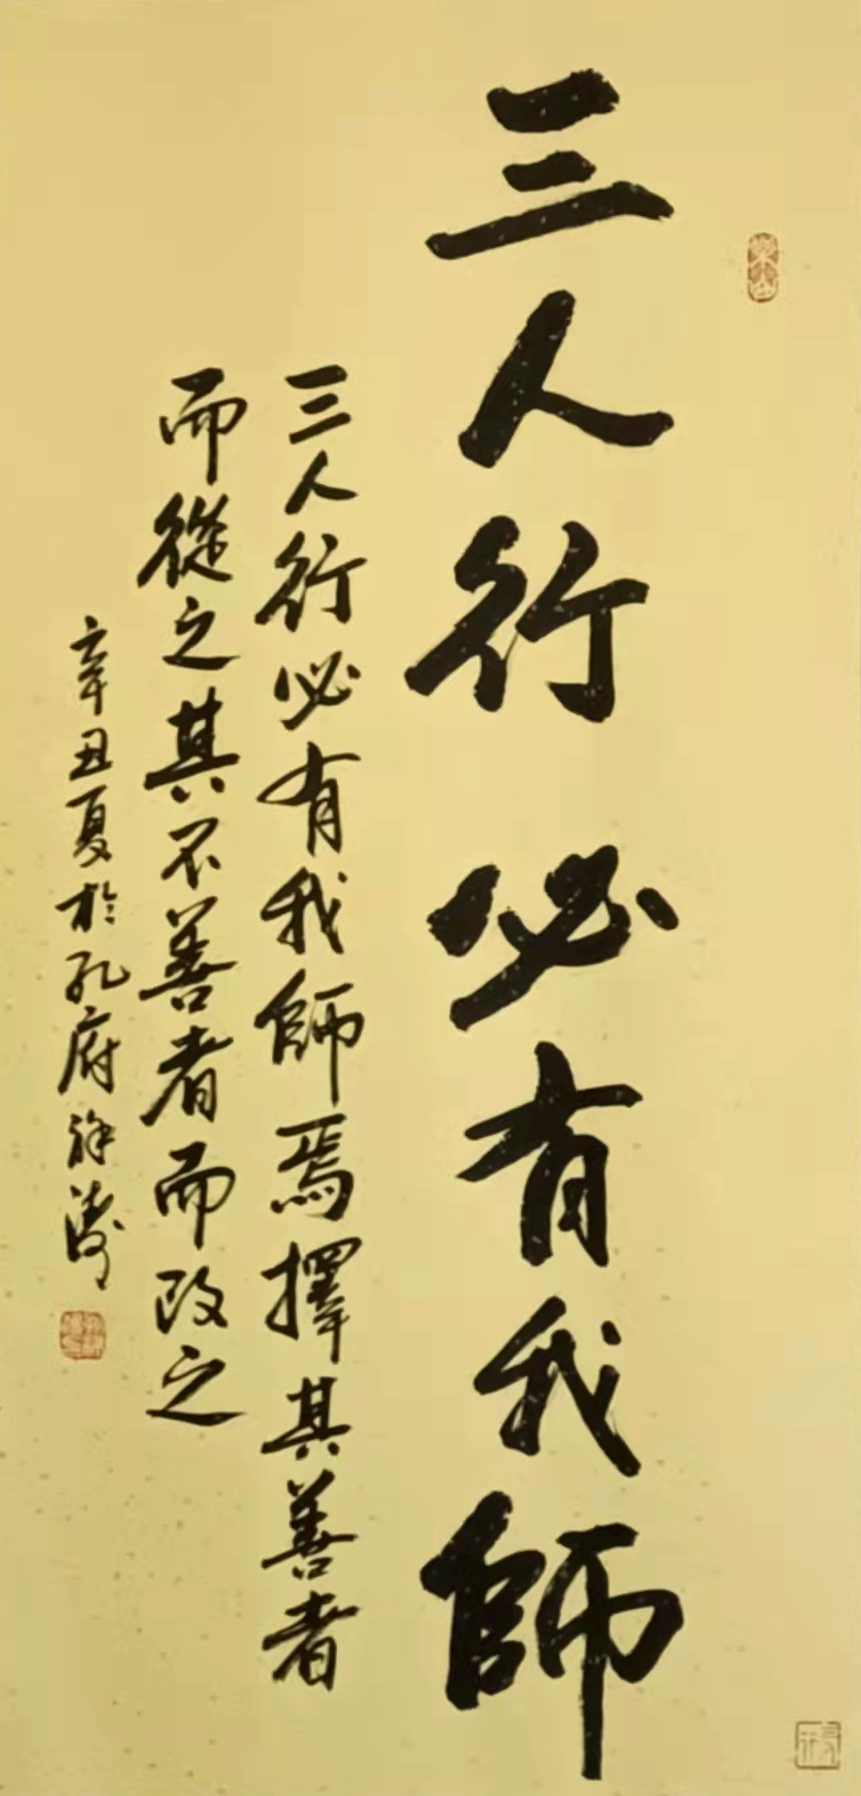 三人行必有我師
三人行必有我師焉擇其善者
而從之其不善者而改之
辛丑夏於孔府徐濤